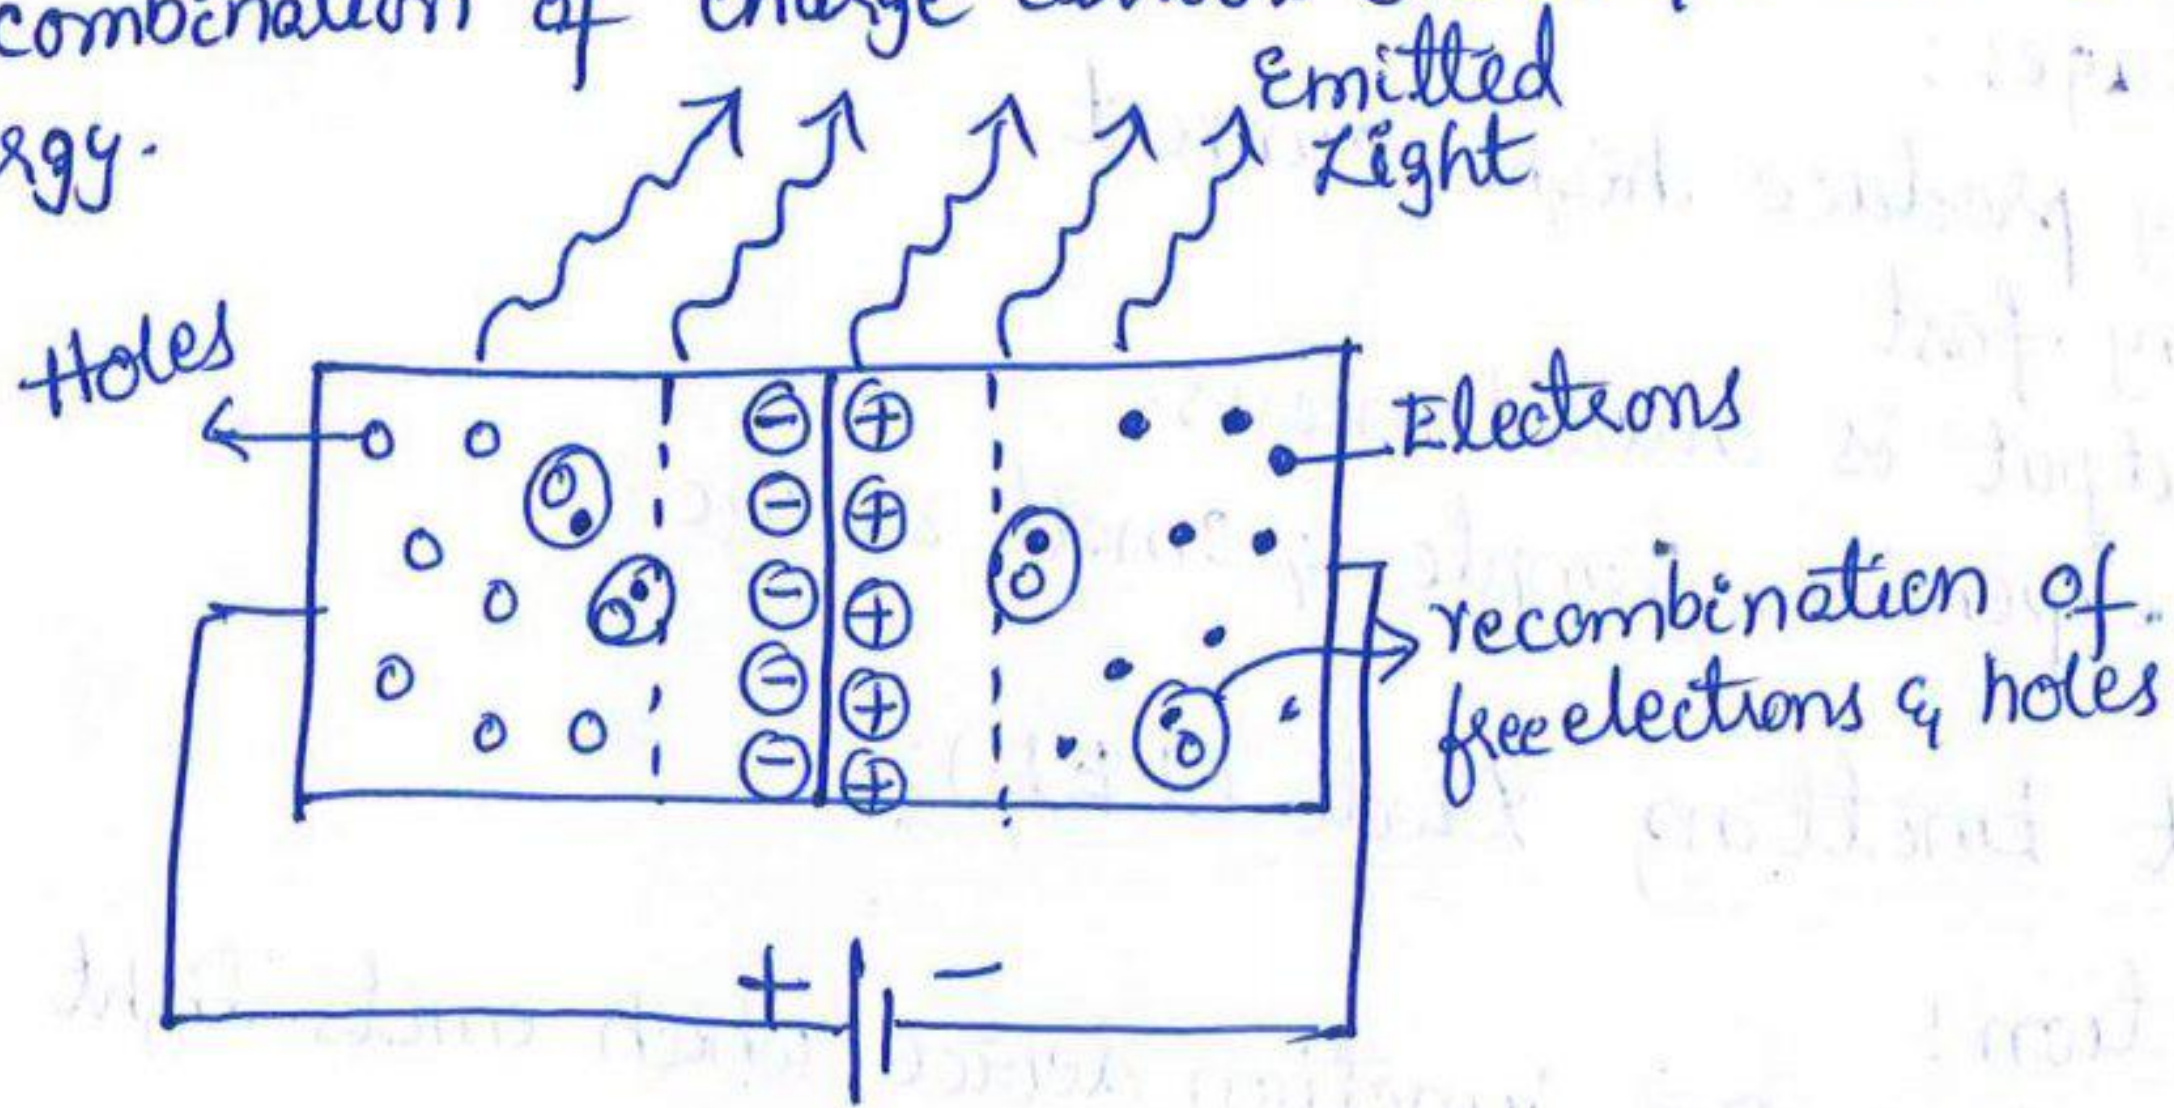 combination of charge
rgy.
Emitted
Light
Holes
Electrons
recombination of
free electrons & holes
+ -